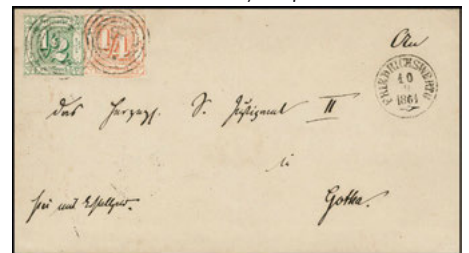 1/2
1/4
An
FRIEDRICHSWERTH
10
1861
Das Herzogl. S. Justizamt III
in
Gotha.
frei mit Bestellgeld.